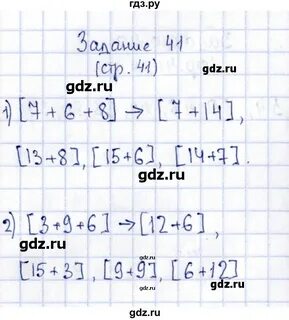 гдз.ру
Задание 41
(стр. 41)
gdz.ru
1) [7 + 6 + 8] → [7 + 14],
gdz.ru gdz.ru
[13 + 8], [15 + 6], [14 + 7].
gdz.ru
2) [3 + 9 + 6] → [12 + 6],
gdz.ru gdz.ru
[15 + 3], [9 + 9], [6 + 12]
gdz.ru